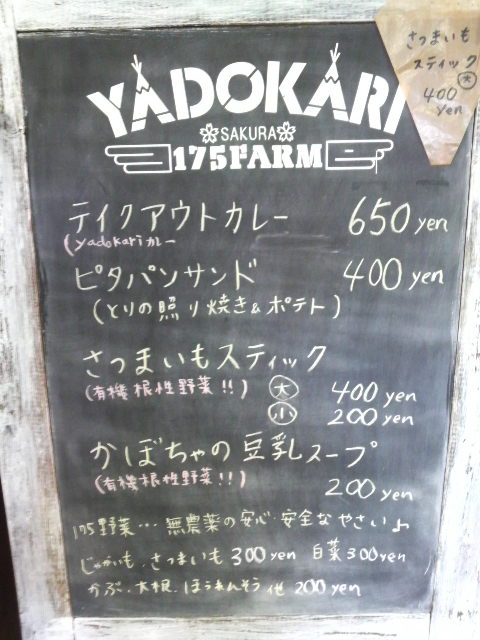 さつまいも
スティック
大
400
yen
YADOKARI
SAKURA
175FARM
テイクアウトカレー 650 yen
(yadokariカレー
ピタパンサンド 400 yen
(とりの照り焼き&ポテト)
さつまいもスティック
(有機根性野菜!!) 大 400 yen
小 200 yen
かぼちゃの豆乳スープ
(有機根性野菜!!) 200 yen
175野菜… 無農薬の安心・安全なやさい♪
じゃがいも、さつまいも 300 yen 白菜 300yen
かぶ、大根、ほうれんそう他 200 yen